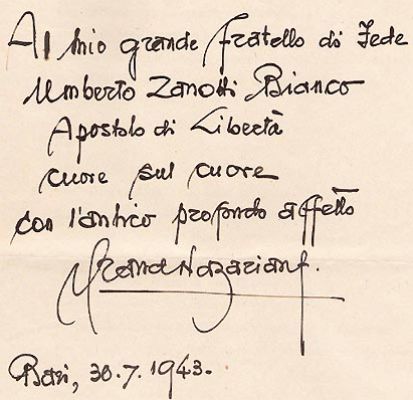 Al mio grande fratello di Fede
Umberto Zanotti Bianco
Apostolo di Libertà
cuore sul cuore
con l'antico profondo affetto
Hrand Nazariantz.
Bari, 30.7.1943.